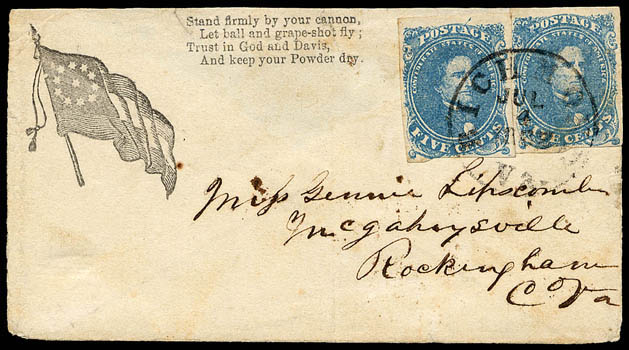 Stand firmly by your cannon,
Let ball and grape-shot fly;
Trust in God and Davis,
And keep your Powder dry.
POSTAGE
CONFEDERATE STATES OF AMERICA
FIVE CENTS
POSTAGE
CONFEDERATE STATES OF AMERICA
FIVE CENTS
RICHMOND
JUL
Miss Jennie Lipscombe
McGaheysville
Rockingham
Co Va